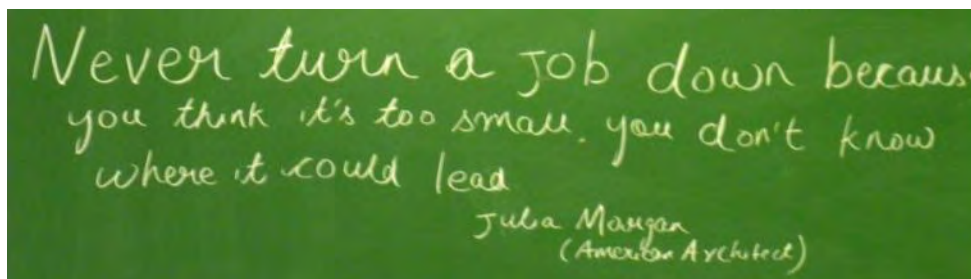 Never turn a Job down becaus
you think it's too small. you don't know
where it could lead
Julia Morgan
(American Architect)